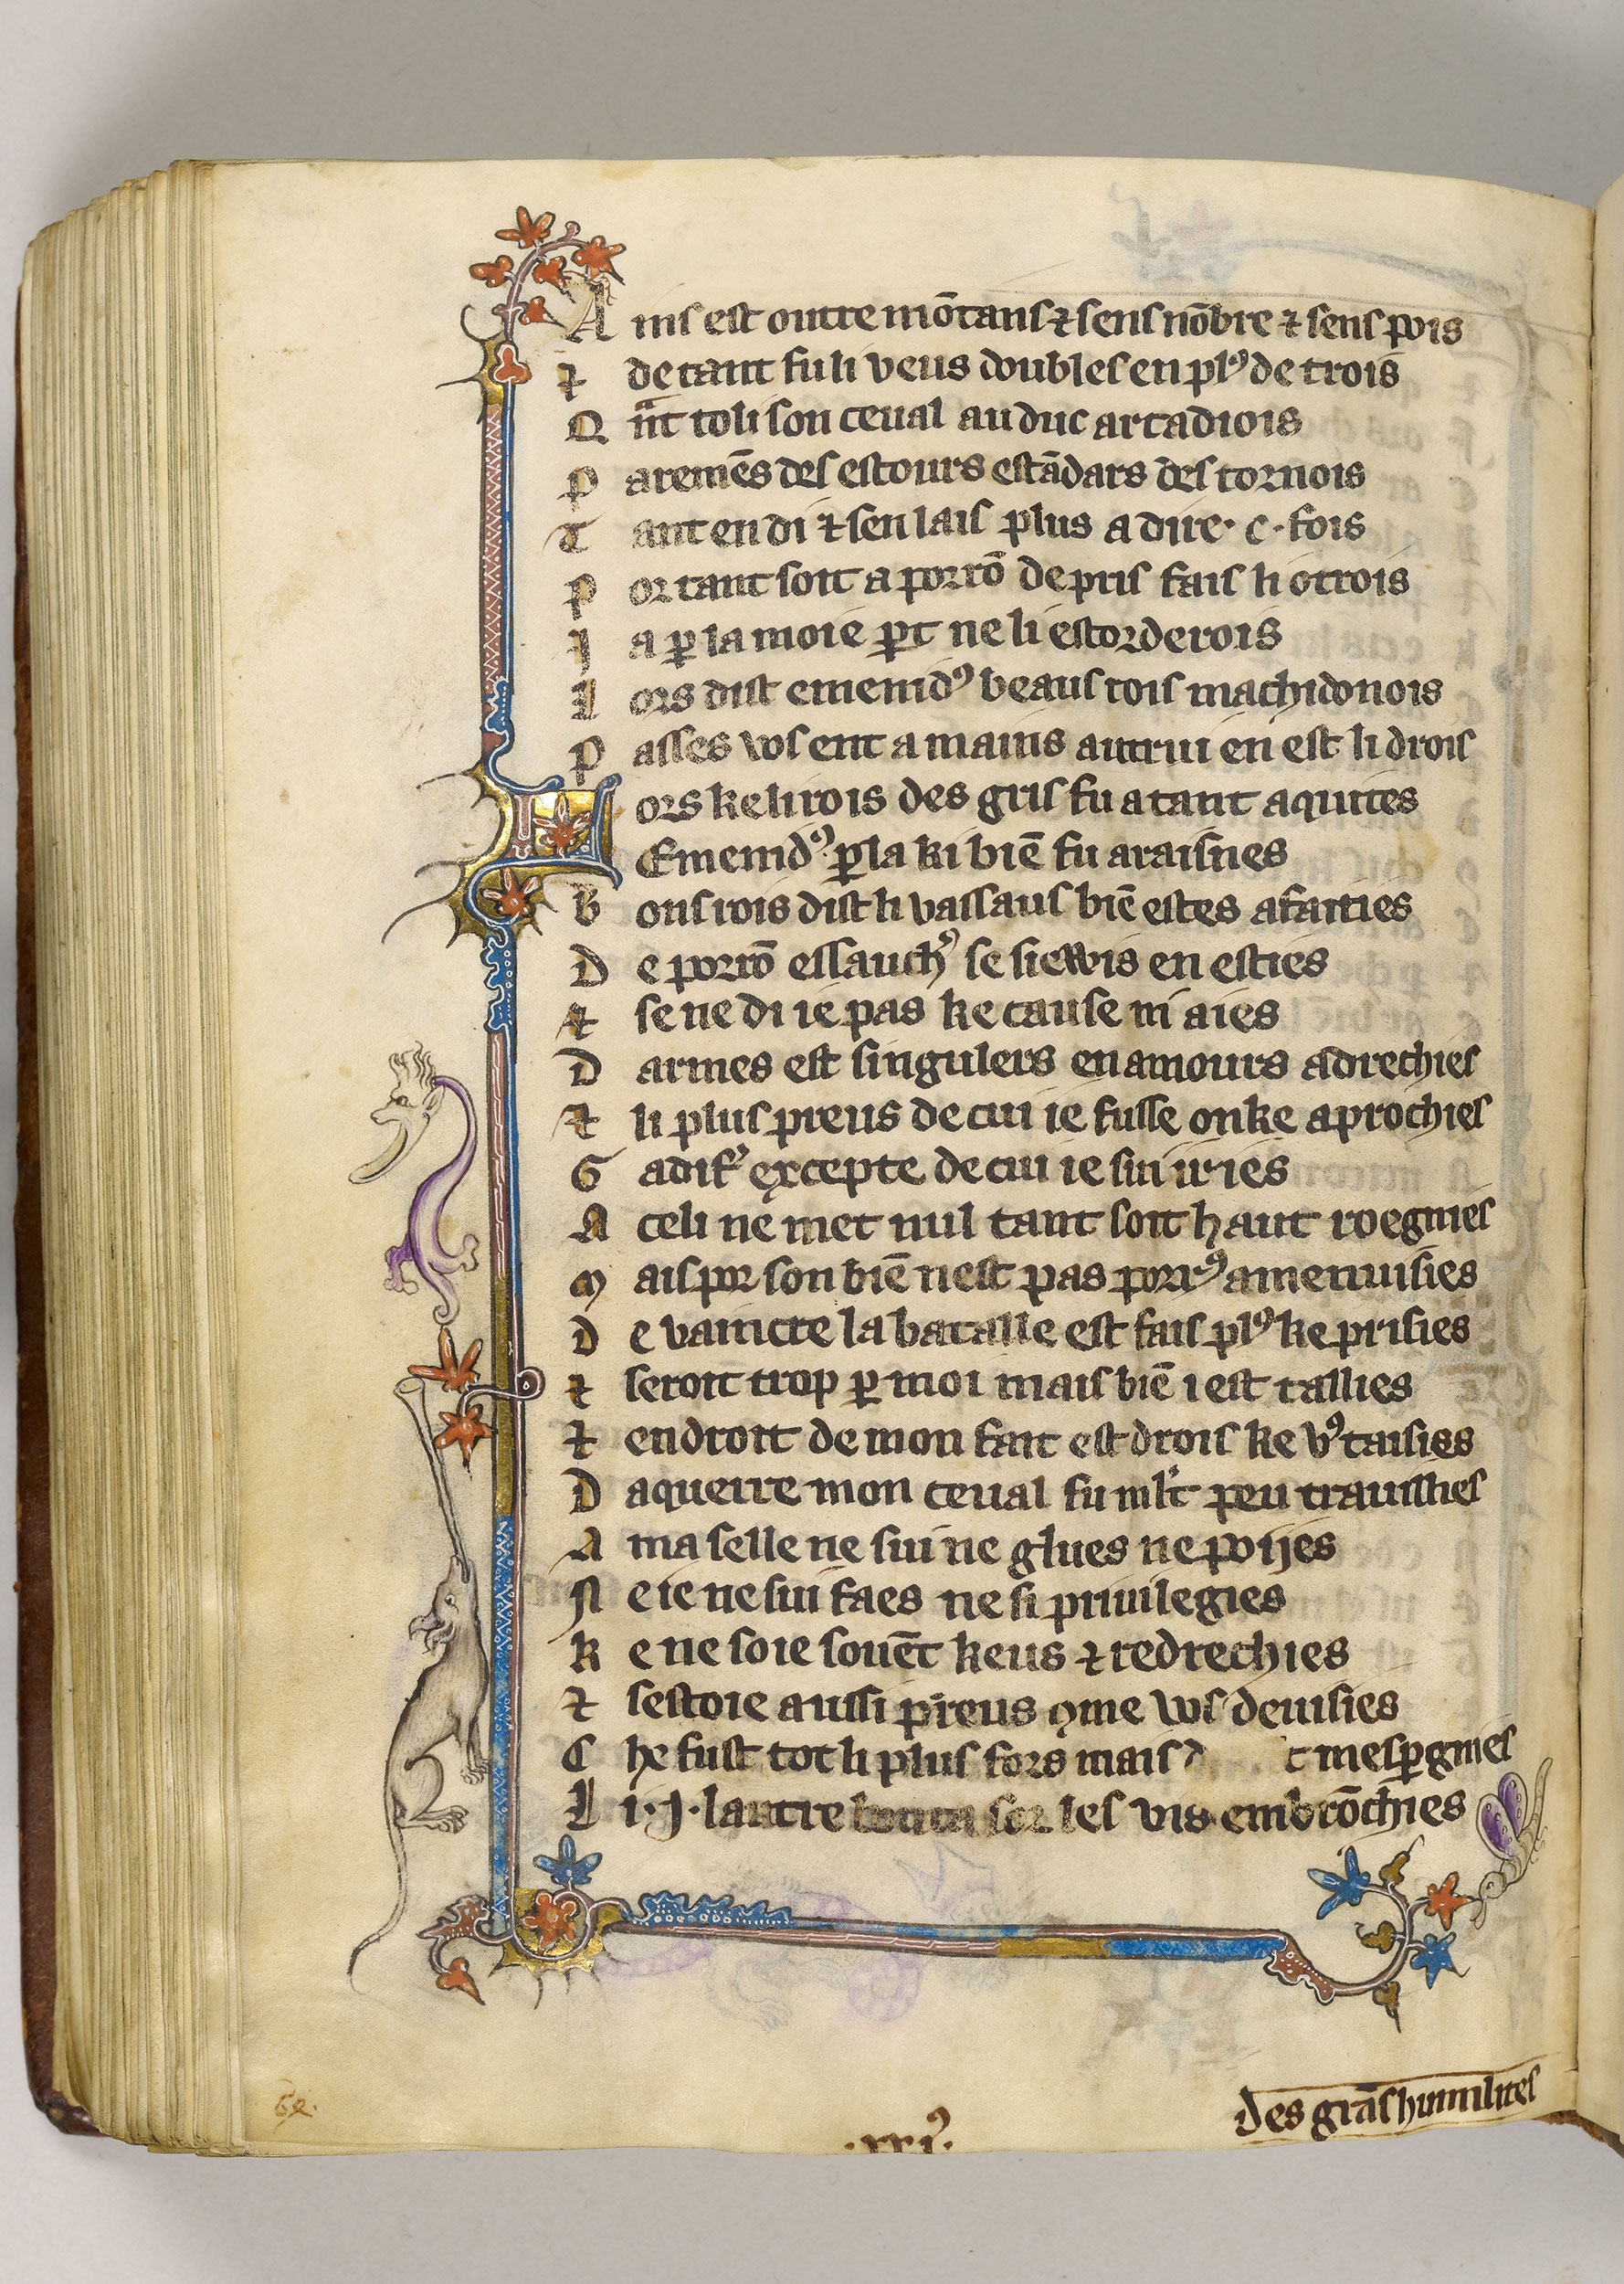 A ins est outre mōtans ⁊ sens nōbre ⁊ sens pois
⁊ de tant fu li veus doubles en plꝰ de trois
Q ᵃnt toli son ceual au duc arcadiois
P aremēs des estours estādars des tornois
T ant en di ⁊ sen lais plus a dire · c · fois
P or tant soit a porrō de pris fais li otrois
J a ꝑ la moie ꝑt ne li estorderois
L ors dist emenidꝰ beaus rois machidonois
P asses vos ent a mains autrui en est li drois
L ors ke li rois des gris fu atant aquites
Emenidꝰ · ꝑ la ki biē fu araisnes
B ons rois dist li vassaus biē estes afaities
D e porrō essauchꝰ se siewis en esties
⁊ se ne di ie pas ke cause ni aies
D armes est singulers en amours adrechies
⁊ li plus preus de cui ie fusse onke aprochies
G adifꝰ excepte de cui ie sui iries
A celi ne met nul tant soit haut roegnies
M ais por son biē nest pas porrꝰ amenuisies
D e vaincre la bataille est fais plꝰ ke prisies
⁊ seroit trop ꝑ moi mais biē i est tallies
⁊ endroit de mon fait est drois ke vꝰ taisies
D aquerre mon ceual fu ml't peu trauillies
A ma selle ne sui ne glues ne poijes
N e ie ne sui faes ne si priuilegies
K e ne soie souēt keus ⁊ redrechies
⁊ sestoie aussi preus ꝯme vos deuisies
C he fust tot li plus fors mais t mesꝑgnies
L i · J · lautre bouta sor les vis embrōchies
des grās humilites
· xxiꝰ ·